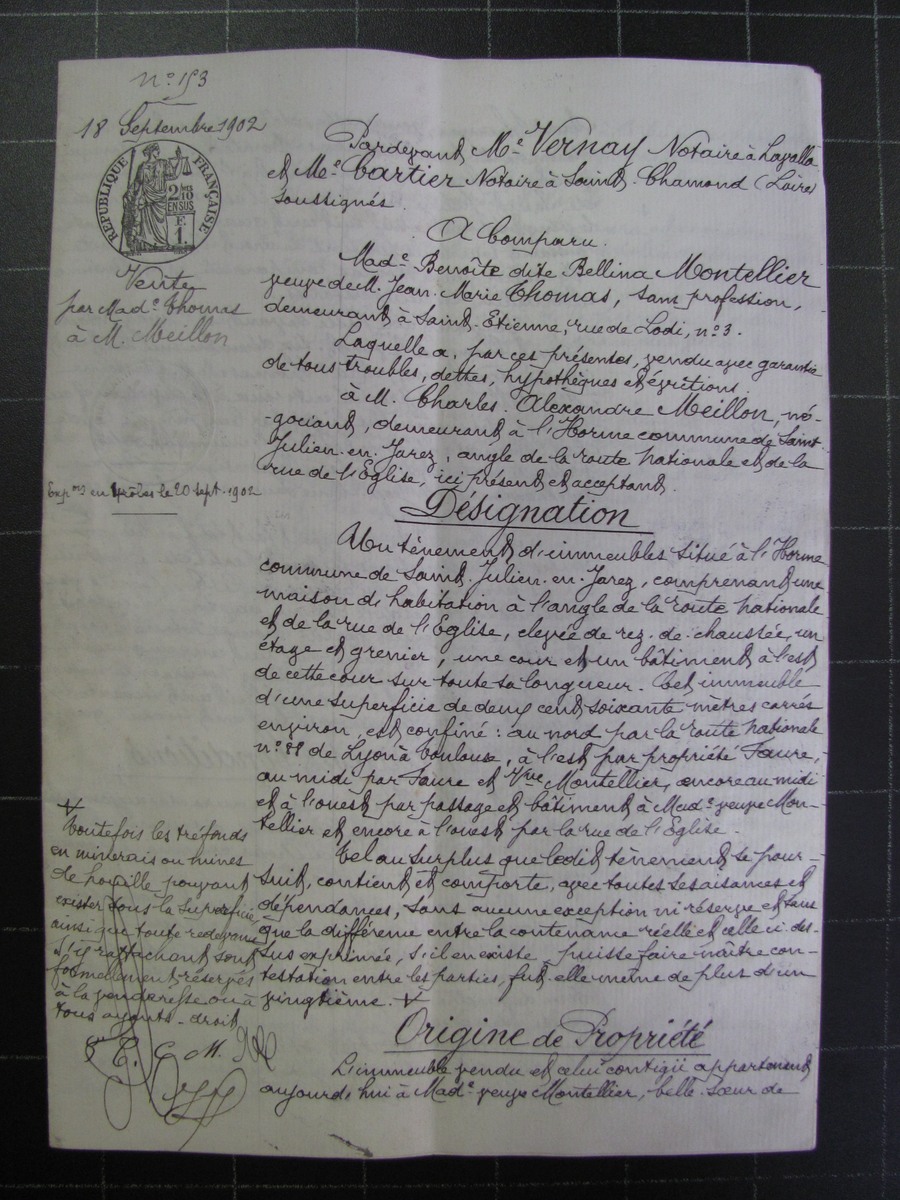 n° 153
18 Septembre 1902
RÉPUBLIQUE FRANÇAISE
2/10 EN SUS
F.
1
Vente
par Mad.e Thomas
à M. Meillon
en rôles le 20 Sept. 1902
Pardevant Me. Vernay Notaire à Lavalla
et Me. Cartier Notaire à Saint-Chamond (Loire)
soussignés.
A Comparu.
Mad.e Benoîte dite Bellina Montellier
veuve de M. Jean-Marie Thomas, sans profession,
demeurant à Saint-Etienne, rue de Lodi, n° 3.
Laquelle a, par ces présentes, vendu avec garantie
de tous troubles, dettes, hypothèques et évictions.
à M. Charles-Alexandre Meillon, né-
-gociant, demeurant à l'Horme commune de Saint
Julien-en-Jarez, angle de la route nationale et de la
rue de l'Eglise, ici présent et acceptant.
Désignation
Un tènement d'immeubles situé à l'Horme
commune de Saint-Julien-en-Jarez, comprenant une
maison d'habitation à l'angle de la route nationale
et de la rue de l'Eglise, elevée de rez-de-chaussée, un
étage et grenier, une cour et un bâtiment à l'est
de cette cour sur toute sa longueur. Cet immeuble
d'une superficie de deux cent soixante mètres carrés
environ, est confiné : au nord par la route nationale
n° 88 de Lyon à Toulouse, à l'est par propriété Faure,
au midi par Faure et Vve Montellier, encore au midi
et à l'ouest par passage et bâtiment à Mad.e veuve Mon-
tellier et encore à l'ouest par la rue de l'Eglise.
Tel au surplus que ledit tènement se pour-
suit, contient et comporte, avec toutes ses aisances et
dépendances, sans aucune exception ni réserve et sans
que la différence entre la contenance réelle et celle ci-des-
sus exprimée, s'il en existe, puisse faire naître con-
testation entre les parties, fut-elle même de plus d'un
vingtième. V
V
Toutefois les tréfonds
en minerais ou mines
de houille pouvant
exister sous la superficie
ainsi que toute redevance
s'y rattachant sont
formellement réservés
à la venderesse ou à
tous ayants-droit
C. M.
Origine de Propriété
L'immeuble vendu et celui contigü appartenant
aujourd'hui à Mad.e veuve Montellier, belle-sœur de